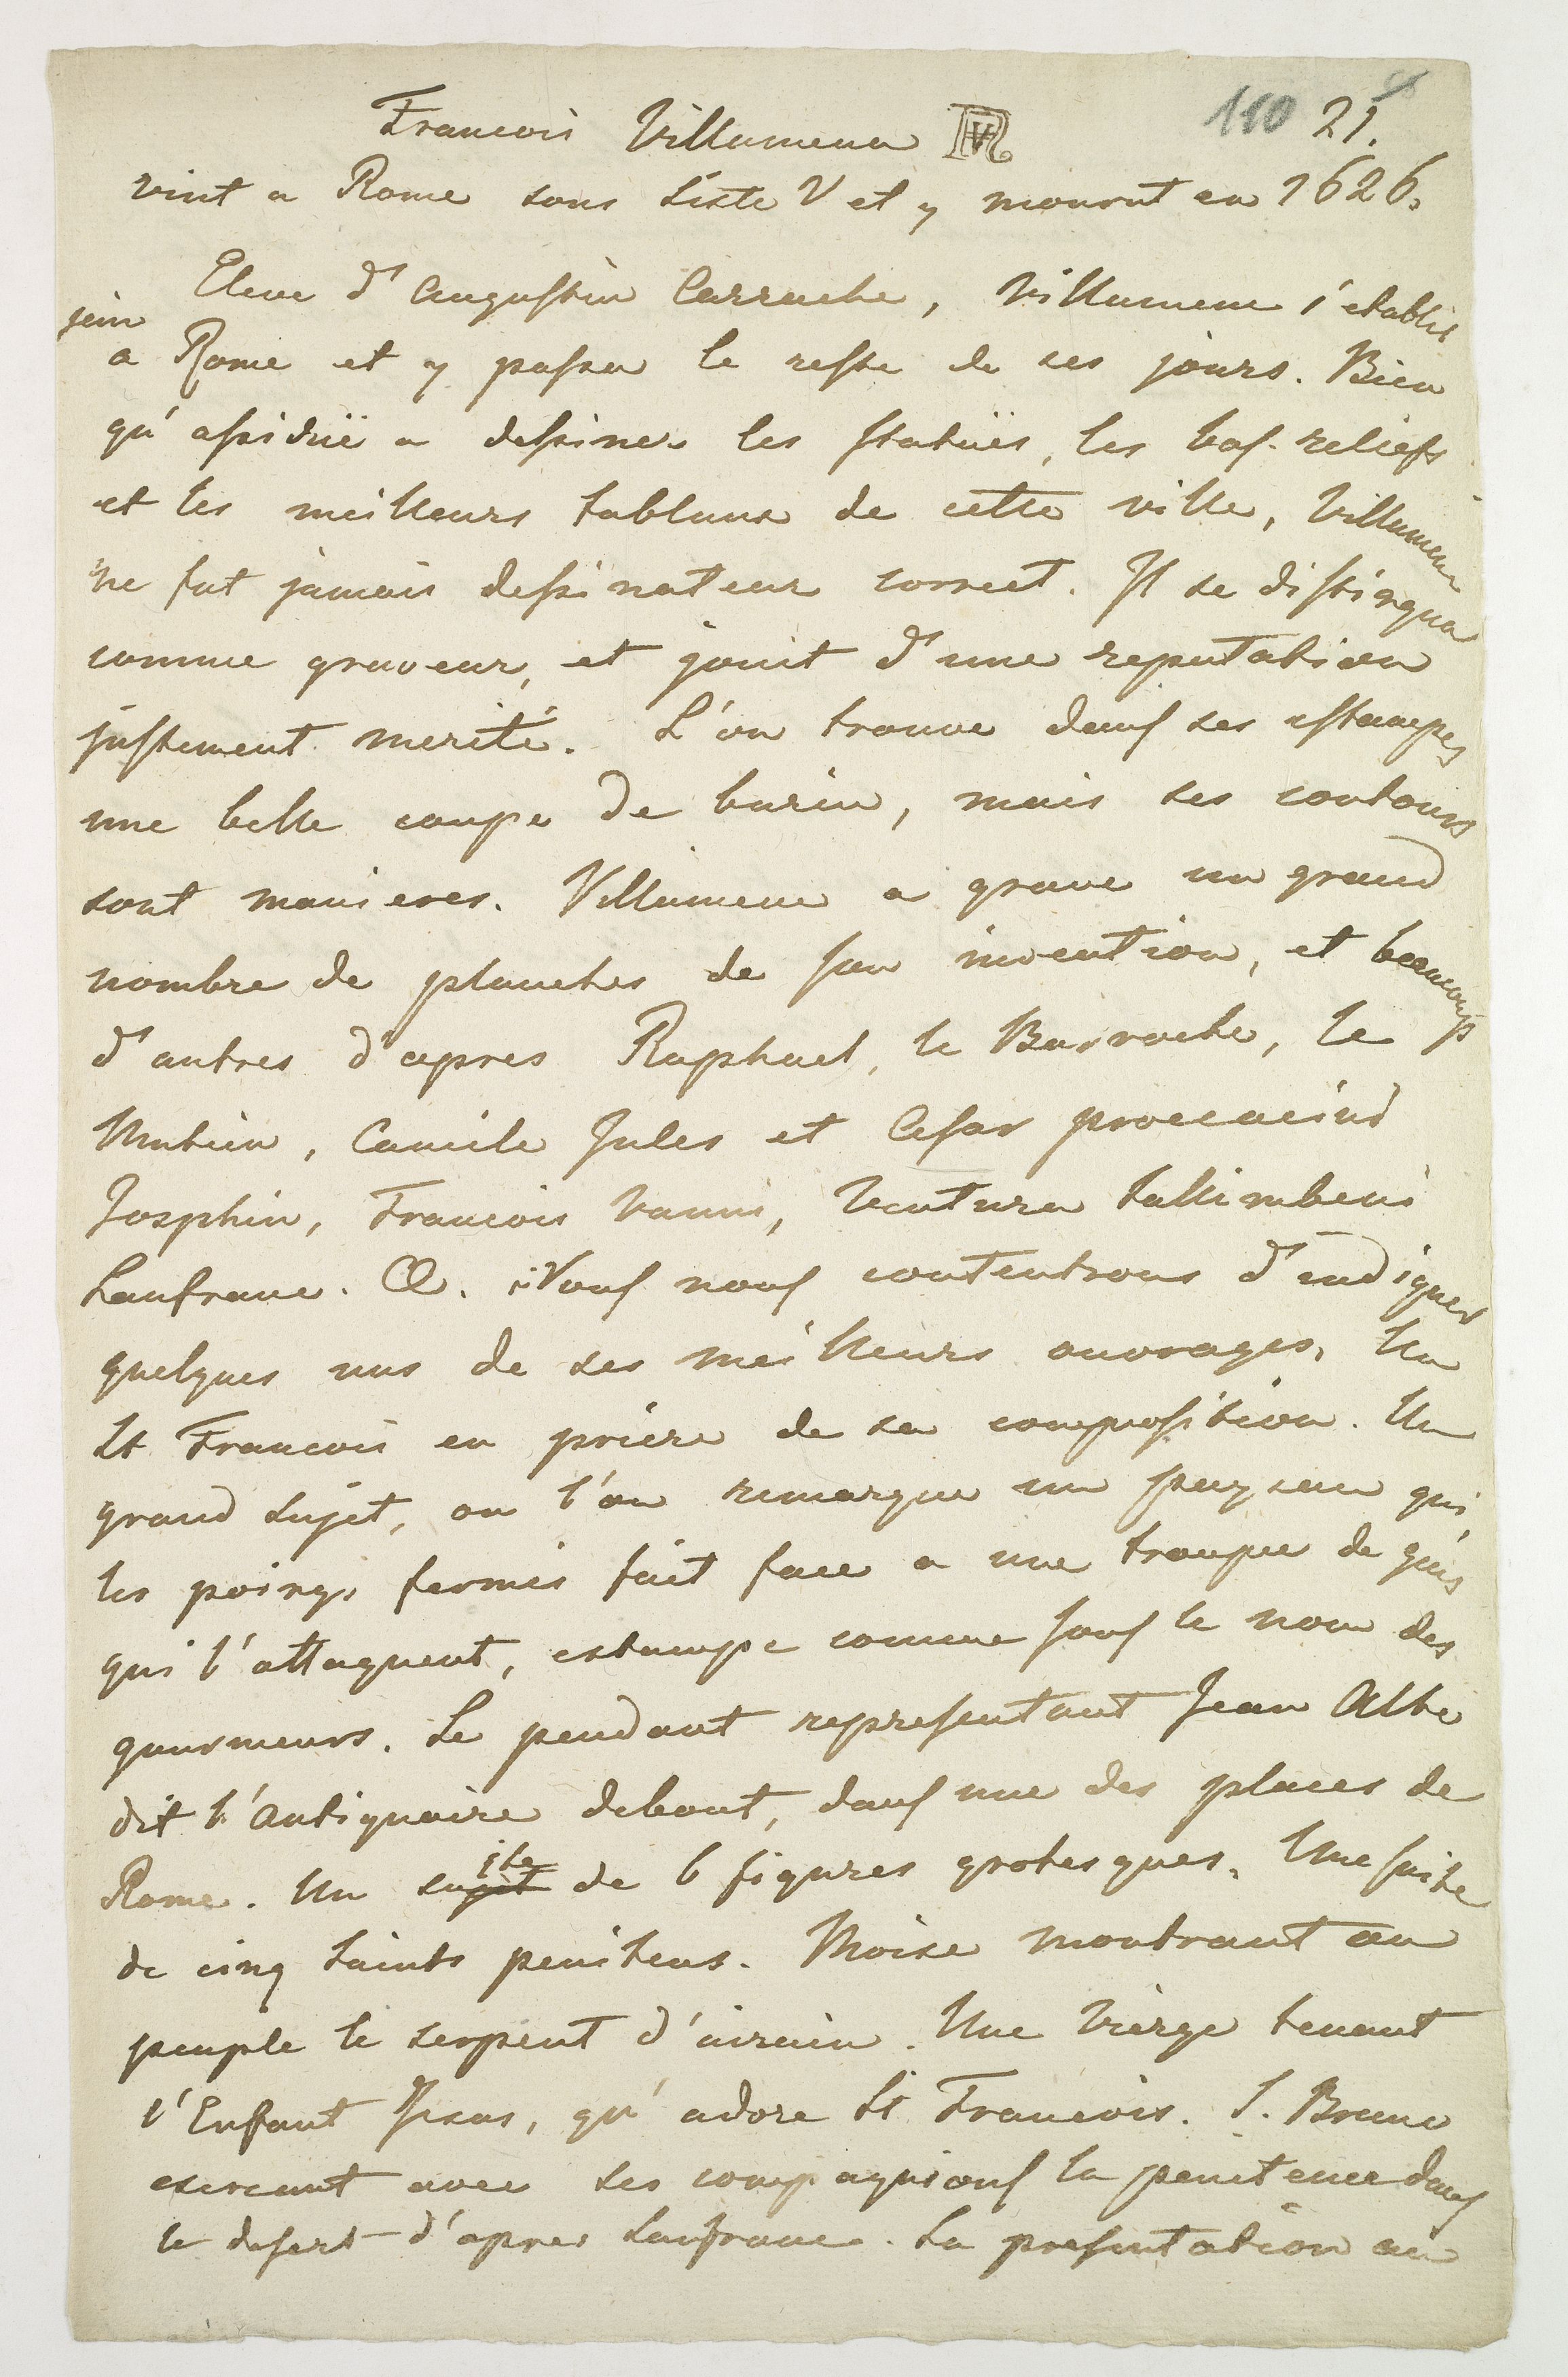 110 21.
Francois Villamena
vint a Rome sous Siste V et y mourut en 1626.
Eleve d'Augustin Carrache, Villamene s'etablit
jeun
a Rome et y passa le reste de ses jours. Bien
qu'assiduë a dessiner les statuës, les bas-reliefs
et les meilleurs tableaux de cette ville, Villamene
ne fut jamais dessinateur correct. Il se distingua
comme graveur, et jouit d'une reputation
justement merité. L'on trouve dans ses estampes
une belle coupe de burin, mais ses contours
sont manieres. Villamene a grave un grand
nombre de planches de son invention, et beaucoup
d'autres d'apres Raphael, le Barroche, le
Mutien, Camile Jules et Cesar proccacini
Josphin, Francois Vanni, Ventura Sallimbeni
Lanfranc. &. Nous nous contentrons d'indiquer
quelques uns de ses meilleurs ouvrages. Un
St Francois en priere de sa composition. Un
grand sujet, ou l'on remarque un paysan qui
les poings fermés fait face a une troupe de gens
qui l'attaquent, estampe connue sous le nom des
gourmeurs. Le pendant representant Jean Alto
dit l'Antiquaire debout, dans une des places de
ite
Rome. Un sujet de 6 figures grotesques. Une suite
de cinq Saints penitens. Moise montrant au
peuple le serpent d'airain. Une Vierge tenant
l'Enfant Jesus, qu'adore St Francois. S. Bruno
exercant avec ses compagnions la penitence dans
le desert d'apres Lanfranc. La presentation au